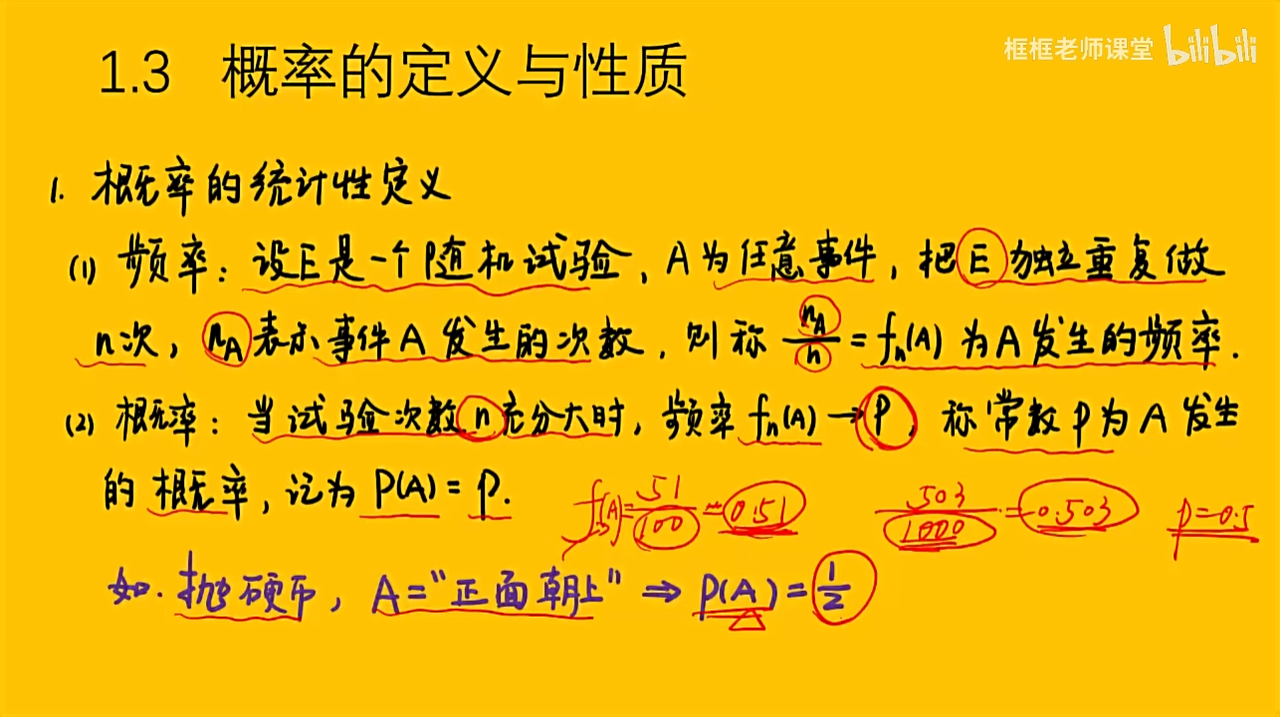 1.3 概率的定义与性质
框框老师课堂 bilibili
1. 概率的统计性定义
(1) 频率：设E是一个随机试验，A为任意事件，把E独立重复做
n次，n_A表示事件A发生的次数，则称 n_A/n = f_n(A) 为A发生的频率.
(2) 概率：当试验次数n充分大时，频率 f_n(A) → p，称常数p为A发生
的概率，记为 P(A) = p.
f_n(A) = 51/100 = 0.51
503/1000 = 0.503
p = 0.5
如. 抛硬币，A = "正面朝上" ⇒ P(A) = 1/2